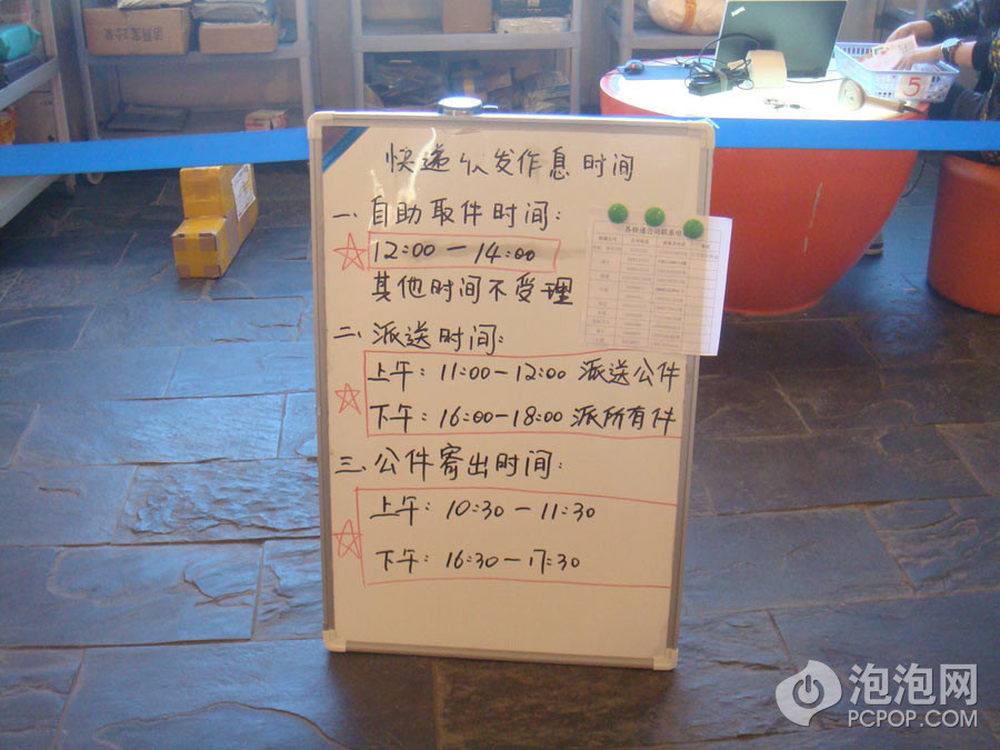 快递收发作息时间
一、自助取件时间:
12:00 — 14:00
其他时间不受理
二、派送时间:
上午: 11:00-12:00 派送公件
下午: 16:00-18:00 派所有件
三、公件寄出时间:
上午: 10:30 — 11:30
下午: 16:30 — 17:30
5
泡泡网
PCPOP.COM